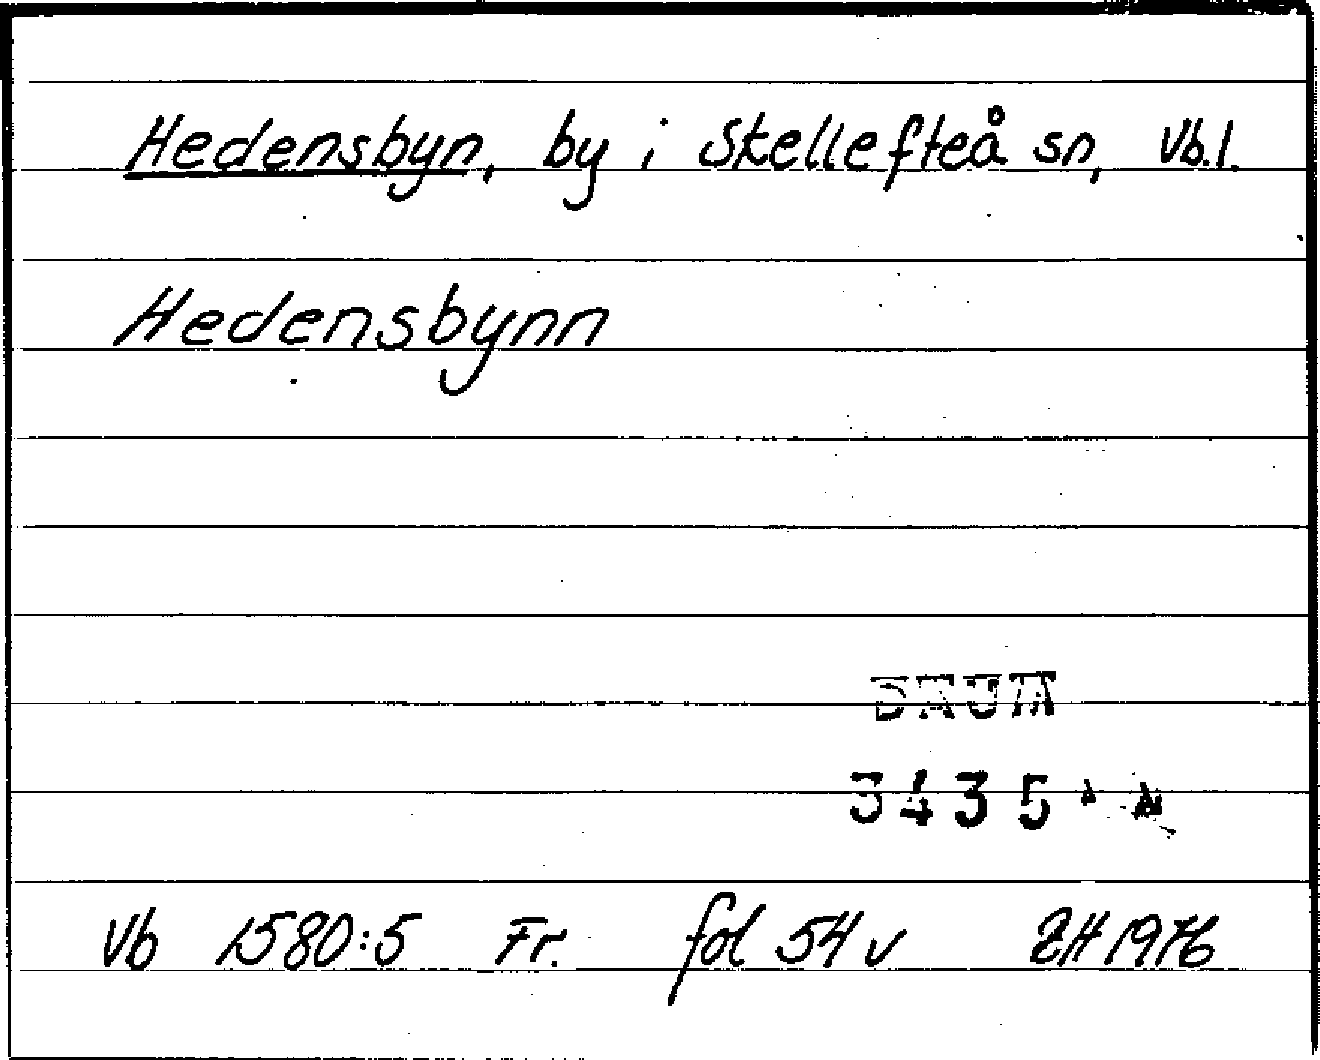 Hedensbyn, by i Skellefteå sn, Vb.l.
Hedensbynn
DAUM
3435
Vb 1580:5 Fr. fol 54 v EH 1976